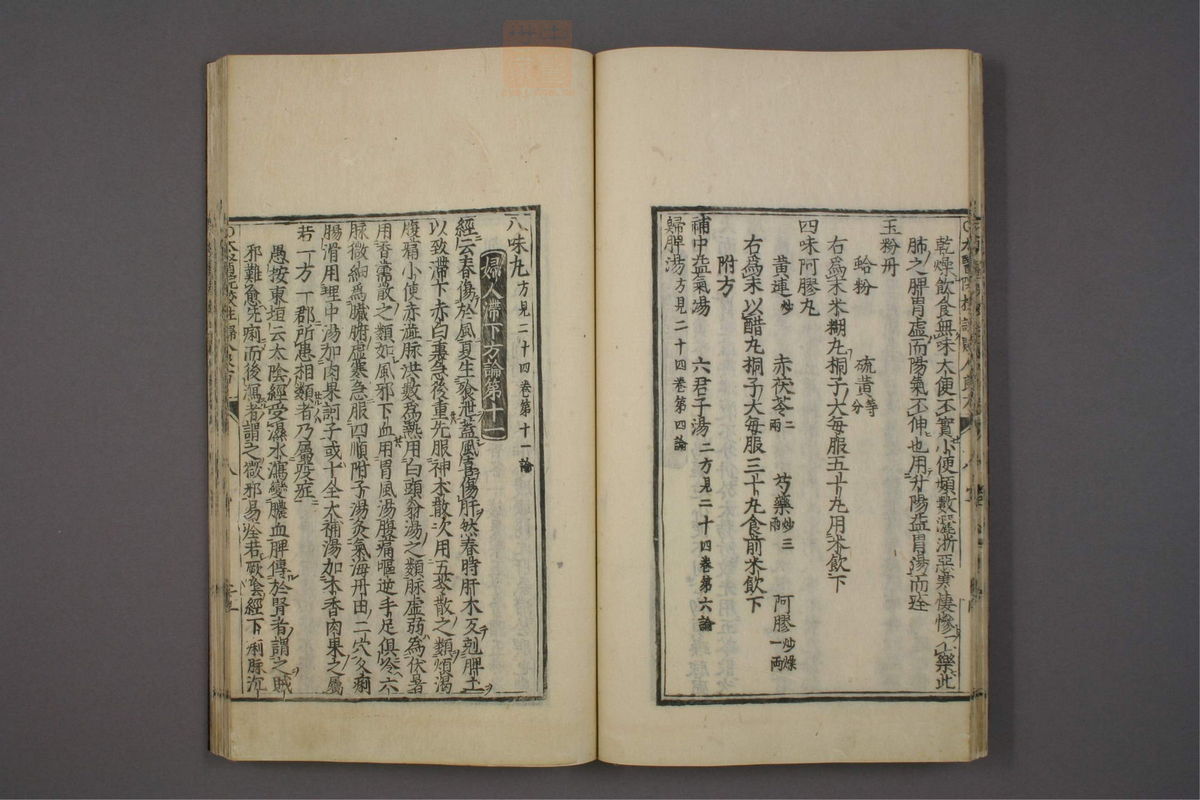 乾燥飲食無味大便不實小便頻數灑淅惡寒悽慘不樂此
肺之脾胃虛而陽氣不伸也用升陽益胃湯而痊
玉粉丹
蛤粉 硫黄等分
右爲末米糊丸桐子大每服五十丸用米飲下
四味阿膠丸
黄連炒 赤茯苓二兩 芍藥炒三兩 阿膠炒燥一兩
右爲末以醋丸桐子大每服三十丸食前米飲下
附方
補中益氣湯 六君子湯二方見二十四卷第六論
歸脾湯方見二十四卷第四論
八味丸方見二十四卷第十一論
婦人滯下方論第十一
經云春傷於風夏生飧泄蓋風傷肝然春時肝木旺剋脾土
以致滯下赤白裏急後重先服神术散次用五苓散之類煩渴
腹痛小便赤澁脉洪數爲熱用白頭翁湯之類脉虛弱爲伏暑
用香薷散之類如風邪下血用胃風湯腹痛嘔逆手足俱冷六
脉微細爲臟腑虛寒急服四順附子湯灸氣海丹田二穴久痢
腸滑用理中湯加肉果訶子或十全大補湯加木香肉果之屬
若一方一郡所患相類者乃屬疫症
愚按東垣云太陰經受濕水瀉變膿血脾傳於腎者謂之賊
邪難愈先痢而後瀉者謂之微邪易痊若厥陰經下痢脉沉